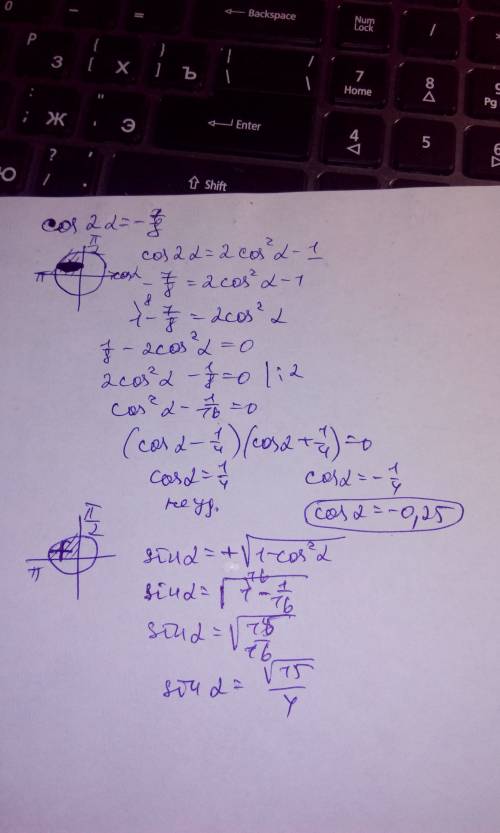 0 - = ← Backspace Num Lock /
Р З { [ Х } ] Ъ | \ / \ 7 Home 8 9 Pg
: ; Ж " ' Э ← Enter 4 5 6
Ю ? / . ⇧ Shift
cos 2α = -7/8
π/2
π
cosα
cos2α = 2cos²α - 1
-7/8 = 2cos²α - 1
1 - 7/8 = 2cos²α
1/8 - 2cos²α = 0
2cos²α - 1/8 = 0 | : 2
cos²α - 1/16 = 0
(cosα - 1/4)(cosα + 1/4) = 0
cosα = 1/4 cosα = -1/4
не уд. cosα = -0,25
π/2
π
+
sinα = +√(1-cos²α)
sinα = √(1 - 1/16)
sinα = √(15/16)
sinα = √15/4